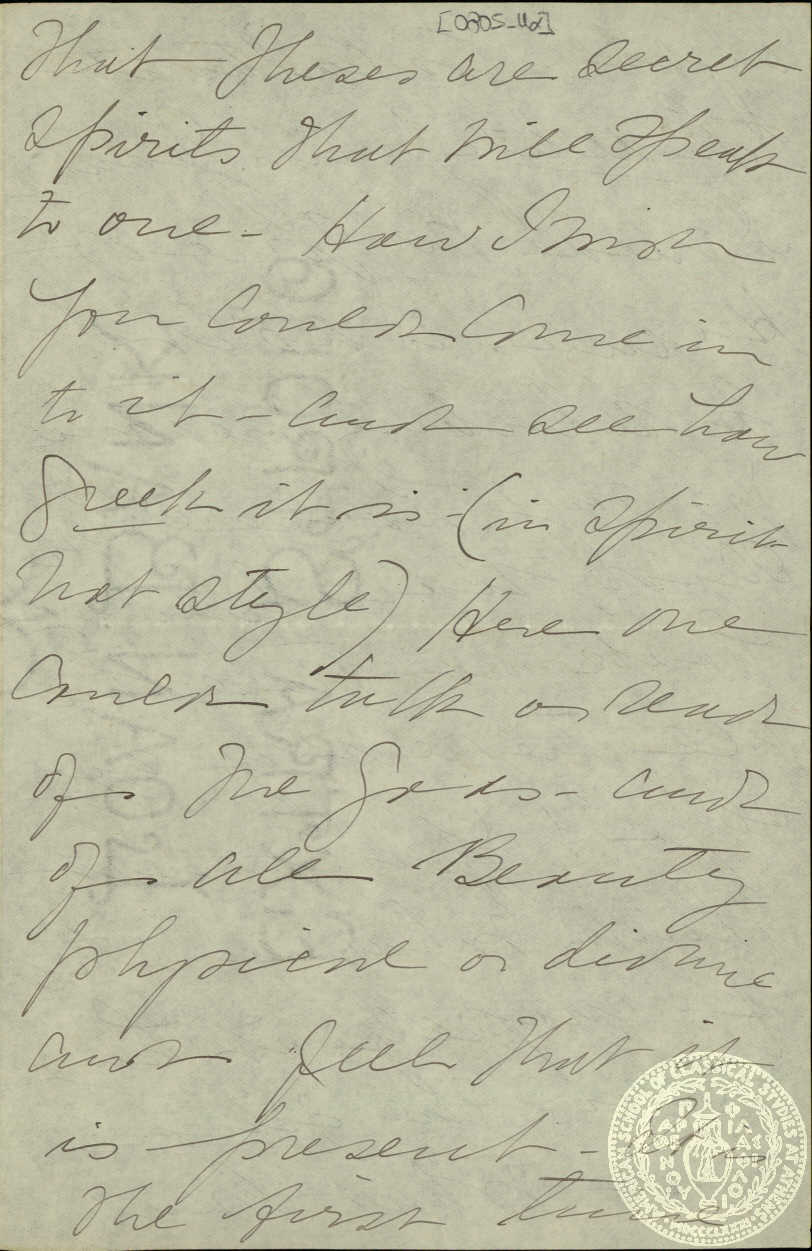 [0305_4a]
that theses are secret
spirits that will speak
to one - How I wish
you could come in
to it - and see how
Greek it is - (in spirit
not style) Here one
could talk or read
of the Gods - and
of all Beauty
physical or divine
and feel that it
is present - It is
the first time
AMERICAN SCHOOL OF CLASSICAL STUDIES AT ATHENS
MDCCCLXXXI